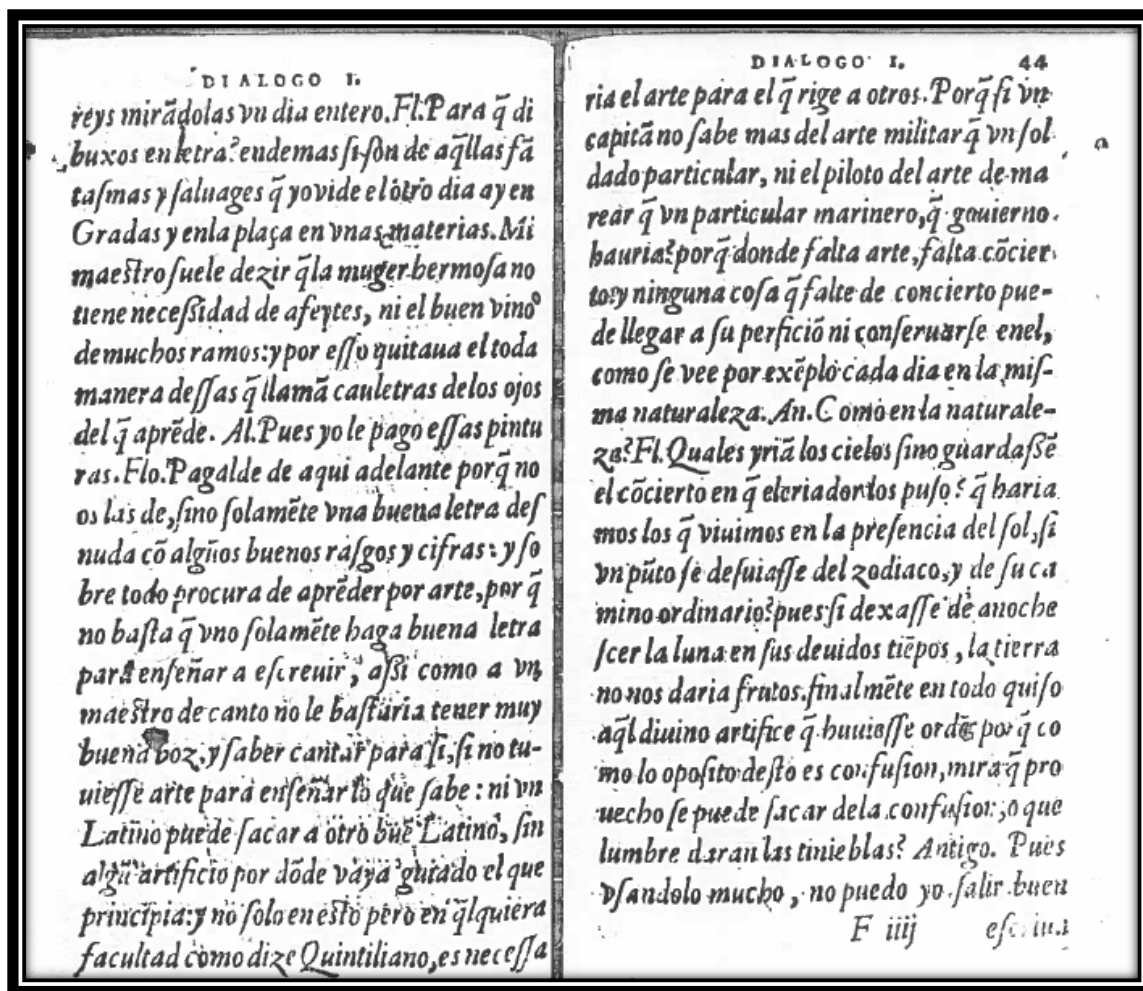 DIALOGO I.
reys mirãdolas vn dia entero. Fl. Para q̃ di
buxos en letra? endemas ſi ſon de aq̃llas fã
taſmas y ſaluages q̃ yo vide el otro dia ay en
Gradas y enla plaça en vnas materias. Mi
maeſtro ſuele dezir q̃ la muger hermoſa no
tiene neceſſidad de afeytes, ni el buen vino
de muchos ramos: y por eſſo quitaua el toda
manera deſſas q̃ llamã cauletras delos ojos
del q̃ aprẽde. Al. Pues yo le pago eſſas pintu
ras. Flo. Pagalde de aqui adelante porq̃ no
os las de, ſino ſolamẽte vna buena letra deſ
nuda cõ algũos buenos raſgos y cifras: y ſo
bre todo procura de aprẽder por arte, por q̃
no baſta q̃ vno ſolamẽte haga buena letra
para enſeñar a eſcreuir, aſſi como a vn
maeſtro de canto no le baſtaria tener muy
buena boz, y ſaber cantar para ſi, ſi no tu-
uieſſe arte para enſeñar lo que ſabe: ni vn
Latino puede ſacar a otro buẽ Latino, ſin
algũ artificio por dõde vaya guiado el que
principia: y no ſolo en eſto pero en q̃lquiera
facultad como dize Quintiliano, es neceſſa
DIALOGO I. 44
ria el arte para el q̃ rige a otros. Porq̃ ſi vn
capitã no ſabe mas del arte militar q̃ vn ſol
dado particular, ni el piloto del arte de ma
rear q̃ vn particular marinero, q̃ gouierno
hauria? porq̃ donde falta arte, falta cõcier
to: y ninguna coſa q̃ falte de concierto pue-
de llegar a ſu perficiõ ni conſeruarſe enel,
como ſe vee por exẽplo cada dia en la miſ-
ma naturaleza. An. Como en la naturale-
za? Fl. Quales yriã los cielos ſino guardaſſẽ
el cõcierto en q̃ el criador los puſo? q̃ haria
mos los q̃ viuimos en la preſencia del ſol, ſi
vn pũto ſe deſuiaſſe del zodiaco, y de ſu ca
mino ordinario? pues ſi dexaſſe de anoche
ſcer la luna en ſus deuidos tiẽpos, la tierra
no nos daria frutos. finalmẽte en todo quiſo
aq̃l diuino artifice q̃ huuieſſe ordẽ por q̃ co
mo lo opoſito deſto es confuſion, mira q̃ pro
uecho ſe puede ſacar dela confuſion, o que
lumbre daran las tinieblas? Antigo. Pues
vſandolo mucho, no puedo yo ſalir buen
F iiij eſcriua